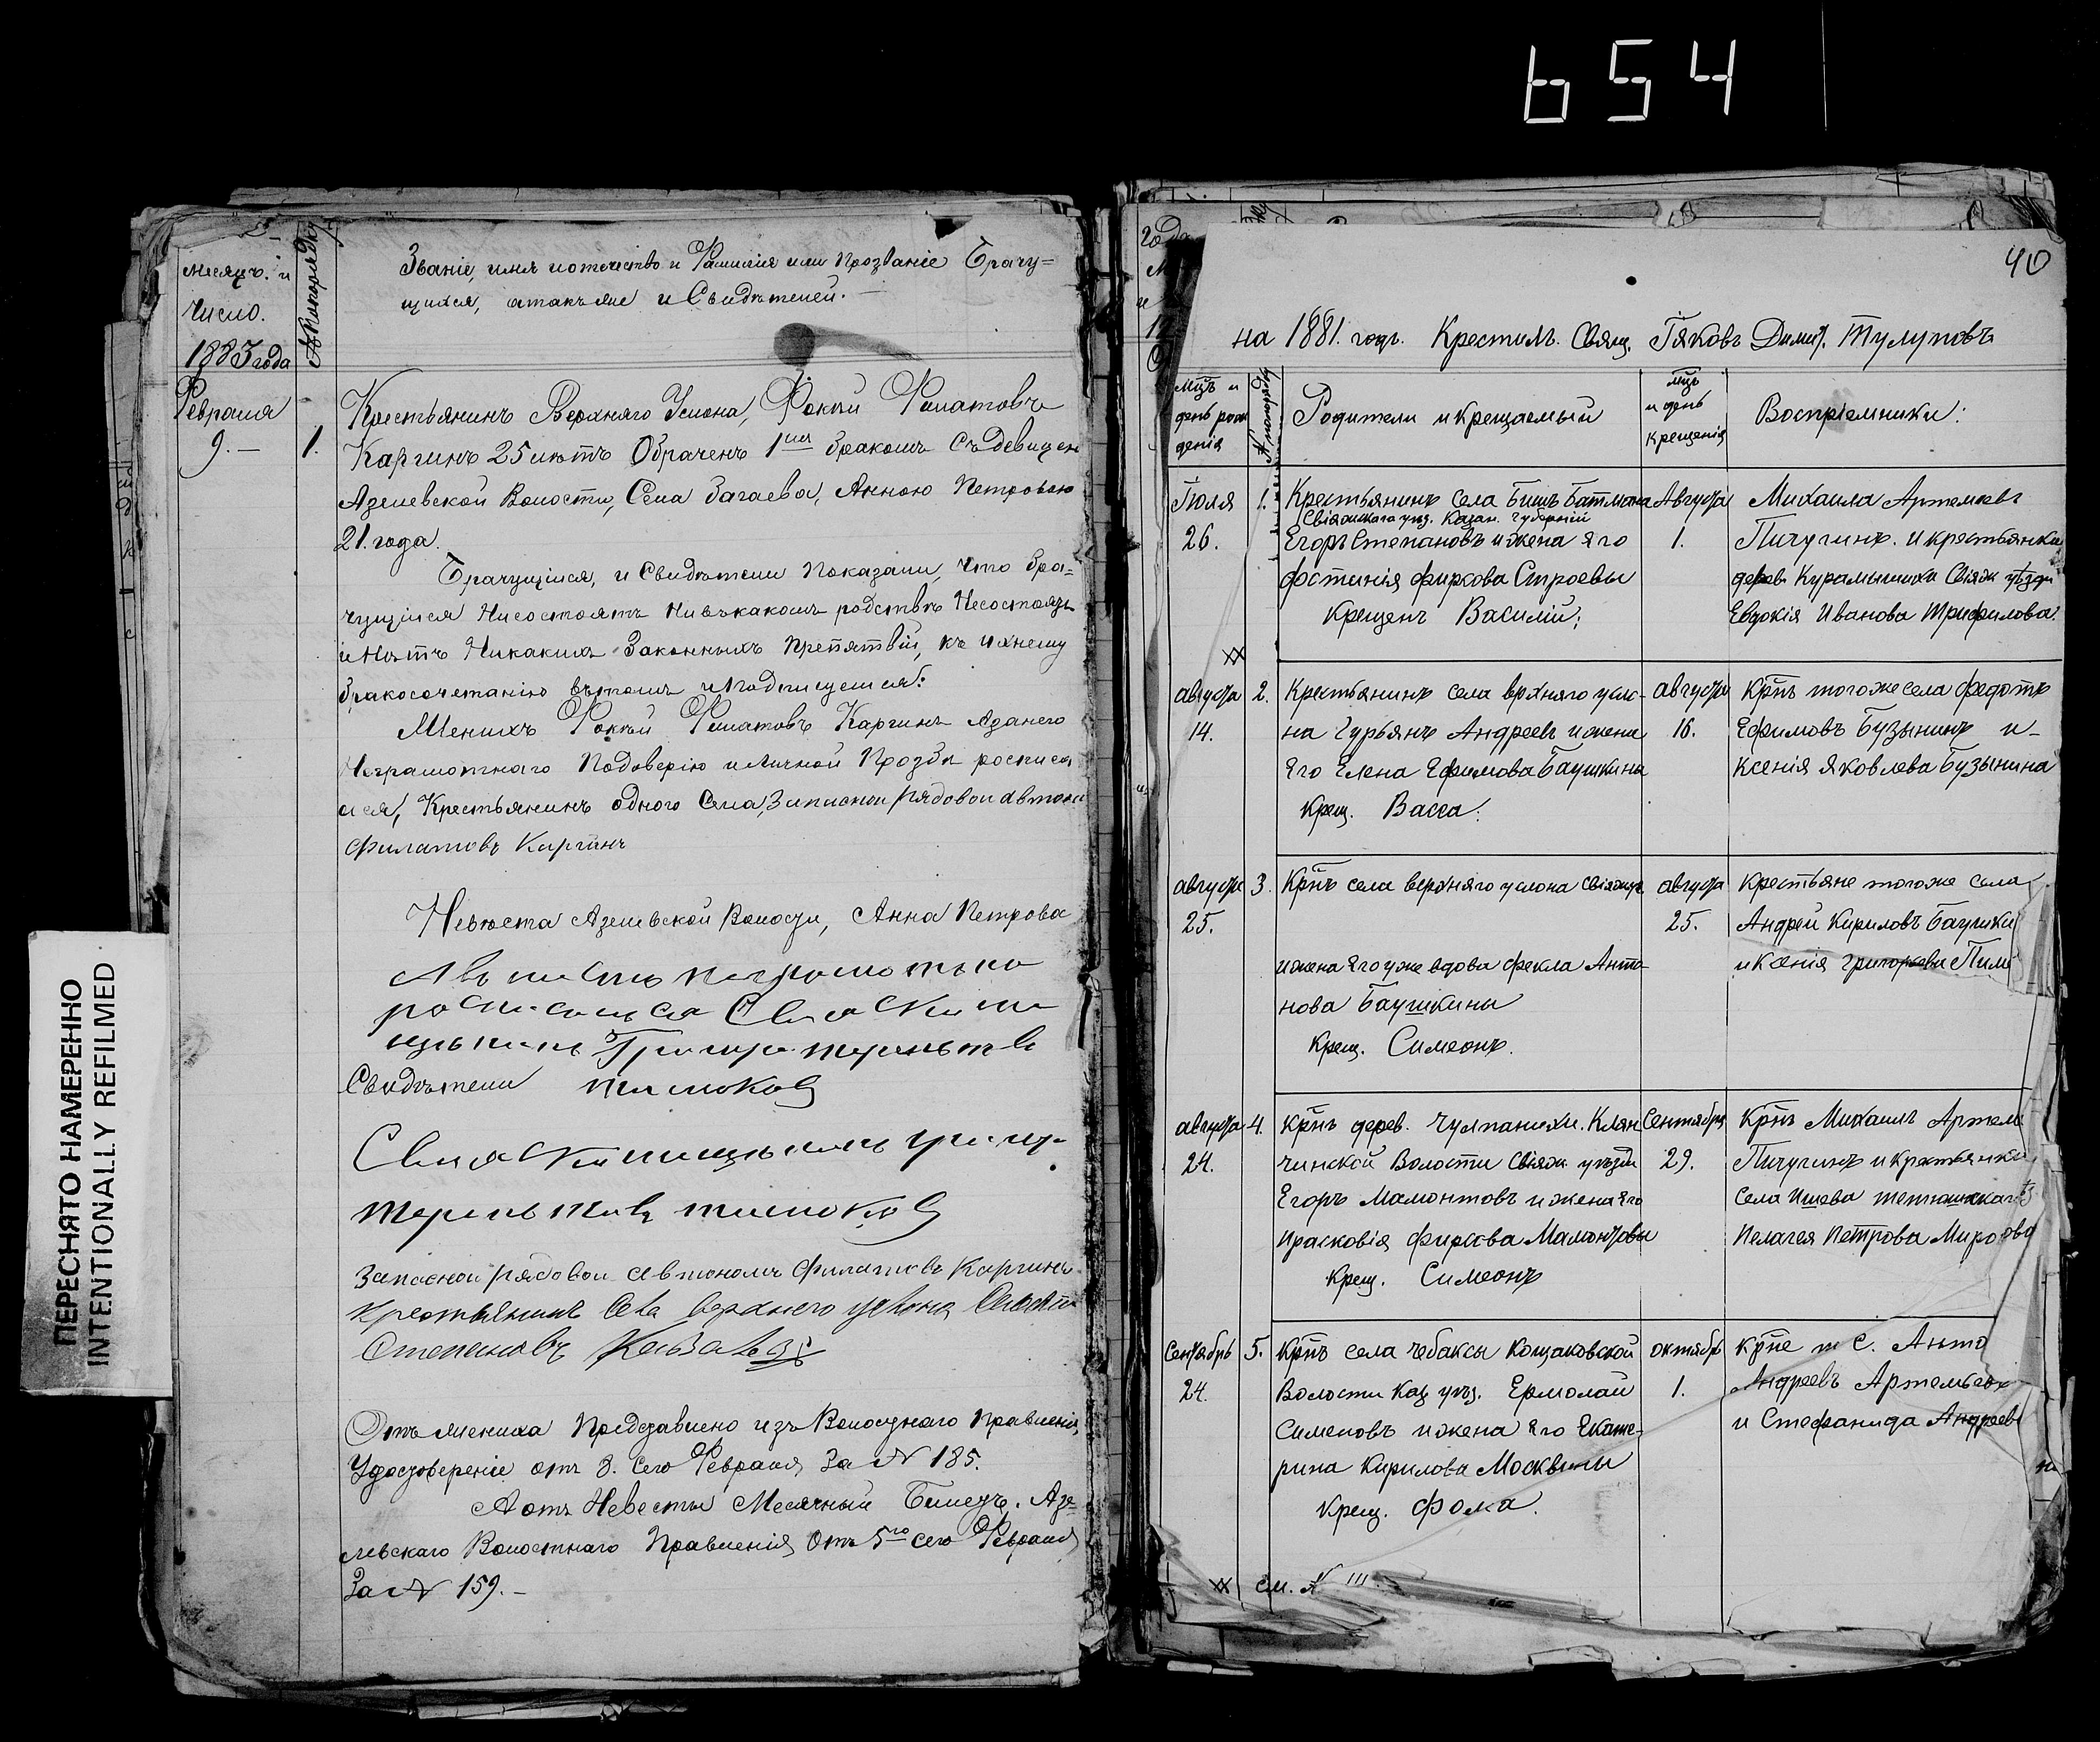 654
ПЕРЕСНЯТО НАМЕРЕННО
INTENTIONALLY REFILMED
Месяцъ. и
Число.
1883 года
№ по порядку
Званіе, имя и отчество и Фамилія или Прозваніе Брачу=
щихся, а такъ же и Свидѣтелей. —
Февраля
9. —
1.
Крестьянинъ Верхняго Услона, Фокѣй Филатовъ
Каргинъ 25 лѣтъ Обраченъ 1мъ бракомъ съ девицей
Азелевской Волости, Села Загаева, Анною Петровою
21. года.
Брачущіися, и Свидѣтели Показали, что бра=
чущіися Несостоятъ Нивъкакомъ родствѣ Несостоятъ
и Нѣтъ Никакихъ Законныхъ Препятствій, къ ихнему
бракосочетанію вътомъ и Подписуемся:
Женихъ Фокѣй Филатовъ Каргинъ Азанего
Неграмотнаго Подоверію иличной Прозбѣ росписа
лся, Крестьянинъ одного Села, Запасной рядовой Автоно
Филатовъ Каргинъ
Невѣста Азелевской Волости, Анна Петрова
росписался Свіяжски ме
щанинъ Григоре терентьевъ
Свидѣтели
Свіяжски мещанинъ григоре
терентьевъ
Запасной рядовой Автономъ Филатовъ Каргинъ
крестьянинъ Села верхнего услона
Степановъ
Отъ жениха Представлено изъ Волостнаго Правленія
Удостовереніе отъ 8. Сего Февраля За № 185.
А отъ Невесты Месячный Билетъ. Азе=
левскаго Волостнаго Правленія Отъ 5го сего Февраля
За № 159. —
года
40
на 1881. годъ. Крестилъ. Свящ. Іяковъ Димит. Тулуповъ
мцъ и
день рож
денія
№ по порядку
Родители и крещаемый
мцъ
и день
крещенія
Воспріемники:
Іюля
26.
1.
Крестьянинъ села Бишъ Батмана
Свіяжскаго уѣз. Казан. Губерній
Егоръ Степановъ и жена его
фостинія фиркова Строевы
Крещенъ Василій;
Августа
1.
Михаила Артемьевъ
Пичугинъ. и крестьянка
дерев. Курамышиха Свіяж уѣзда
Евдокія Иванова Трифилова.
августа
14.
2.
Крестьянинъ села врхняго усло-
на Гурьянъ Андреевъ и жена
его Елена Ефимова Баушкины
Крещ. Васса.
августа
16.
Крпъ тогоже села Федотъ
Ефимовъ Бузынинъ и-
Ксенія Яковлева Бузынина
августа
25.
3.
Крпъ села верхняго услона Свіяжск
и жена его уже вдова Фекла Анто-
нова Баушкины
Крещ. Симеонъ.
августа
25.
Крестьяне тогоже села
Андрей Кириловъ Баушки
и Ксенія Григорьева Пили
августа
24.
4.
Крпъ дерев. Чулпанихи. Клян
чинской Волости Свіяж уѣзда
Егоръ Мамонтовъ и жена его
Прасковія Фирсова Мамонтовы
Крещ. Симеонъ
Сентября
29.
Крпъ Михаилъ Артемь
Пичугинъ и крестьянка
Села Ишева тетюшскаго
Пелагея Петрова Миронова
Сентябрь
24.
5.
Крпъ села Чебаксы Кощаковской
Волости Каз уѣз. Ермолай
Сименовъ и жена его Екате-
рина Кирилова Москвины
Крещ. Фома.
октября
1.
Крпе т С. Анто
Андреевъ Артемьевъ
и Стефанида Андреев
см. № III.